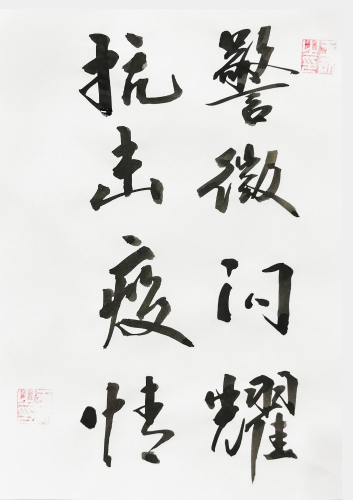 警徽闪耀
抗击疫情